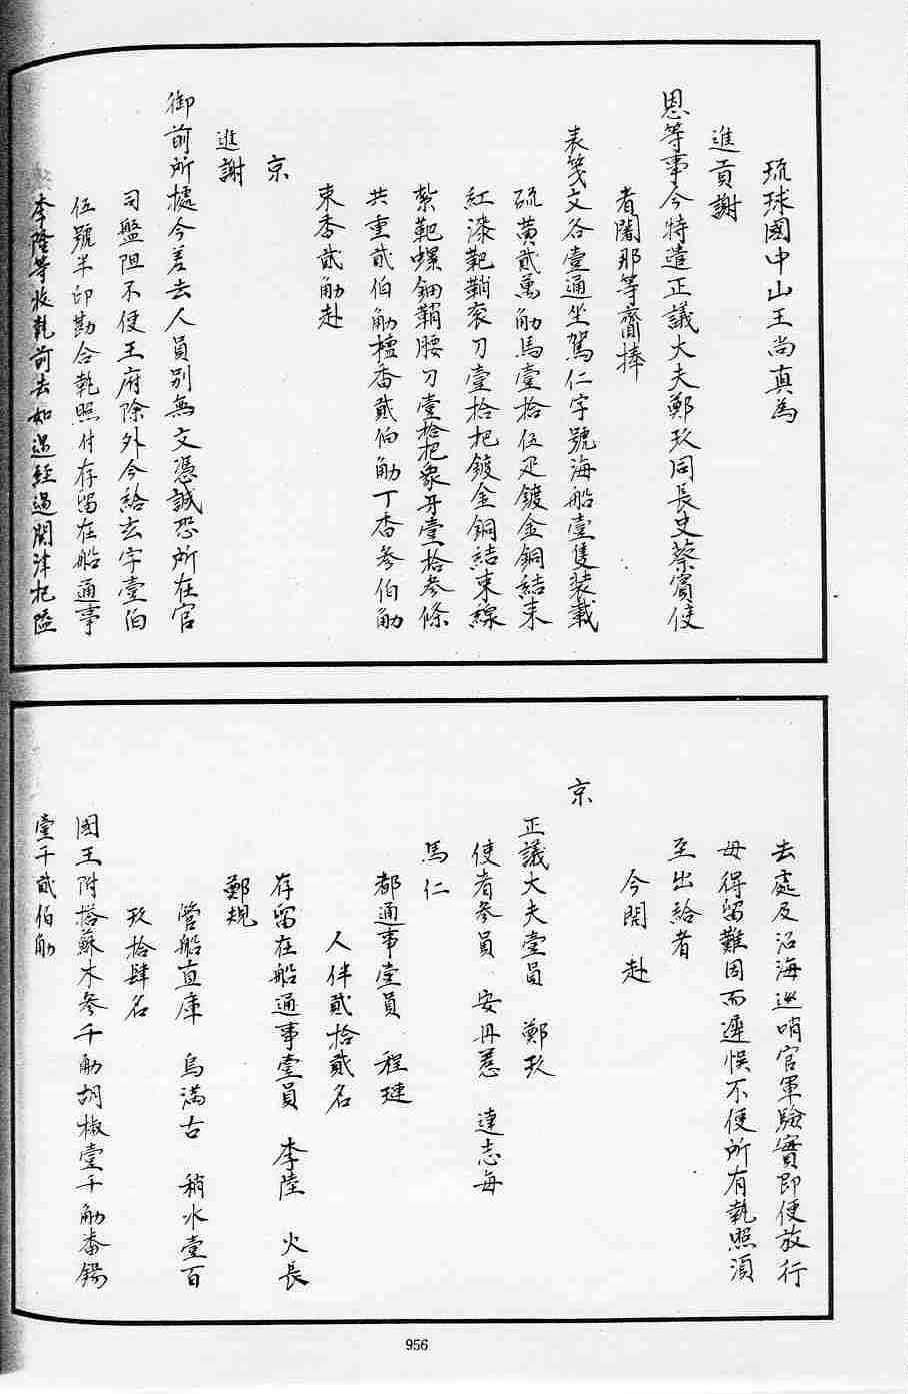 琉球國中山王尚真為
進貢謝
恩等事今特遣正議大夫鄭玖同長史蔡賓使
者闍那等齎捧
表箋文各壹通坐駕仁字號海船壹隻裝載
硫黃貳萬觔馬壹拾伍疋鍍金銅結束
紅漆靶鞘袞刀壹拾把鍍金銅結束線
紮靶螺鈿鞘腰刀壹拾把象牙壹拾參條
共重貳伯觔檀香貳伯觔丁香參伯觔
束香貳觔赴
京
進謝
御前所據今差去人員別無文憑誠恐所在官
司盤阻不便王府除外今給玄字壹伯
伍號半印勘合執照付存留在船通事
李隆等收執前去如遇經過關津把隘
去處及沿海巡哨官軍驗實即便放行
毋得留難因而遲悞不便所有執照須
至出給者
今開 赴
京
正議大夫壹員 鄭玖
使者參員 安丹惹 達志每
馬仁
都通事壹員 程璉
人伴貳拾貳名
存留在船通事壹員 李陸 火長
鄭規
管船直庫 烏滿古 稍水壹百
玖拾肆名
國王附搭蘇木參千觔胡椒壹千觔番錫
壹千貳伯觔
956